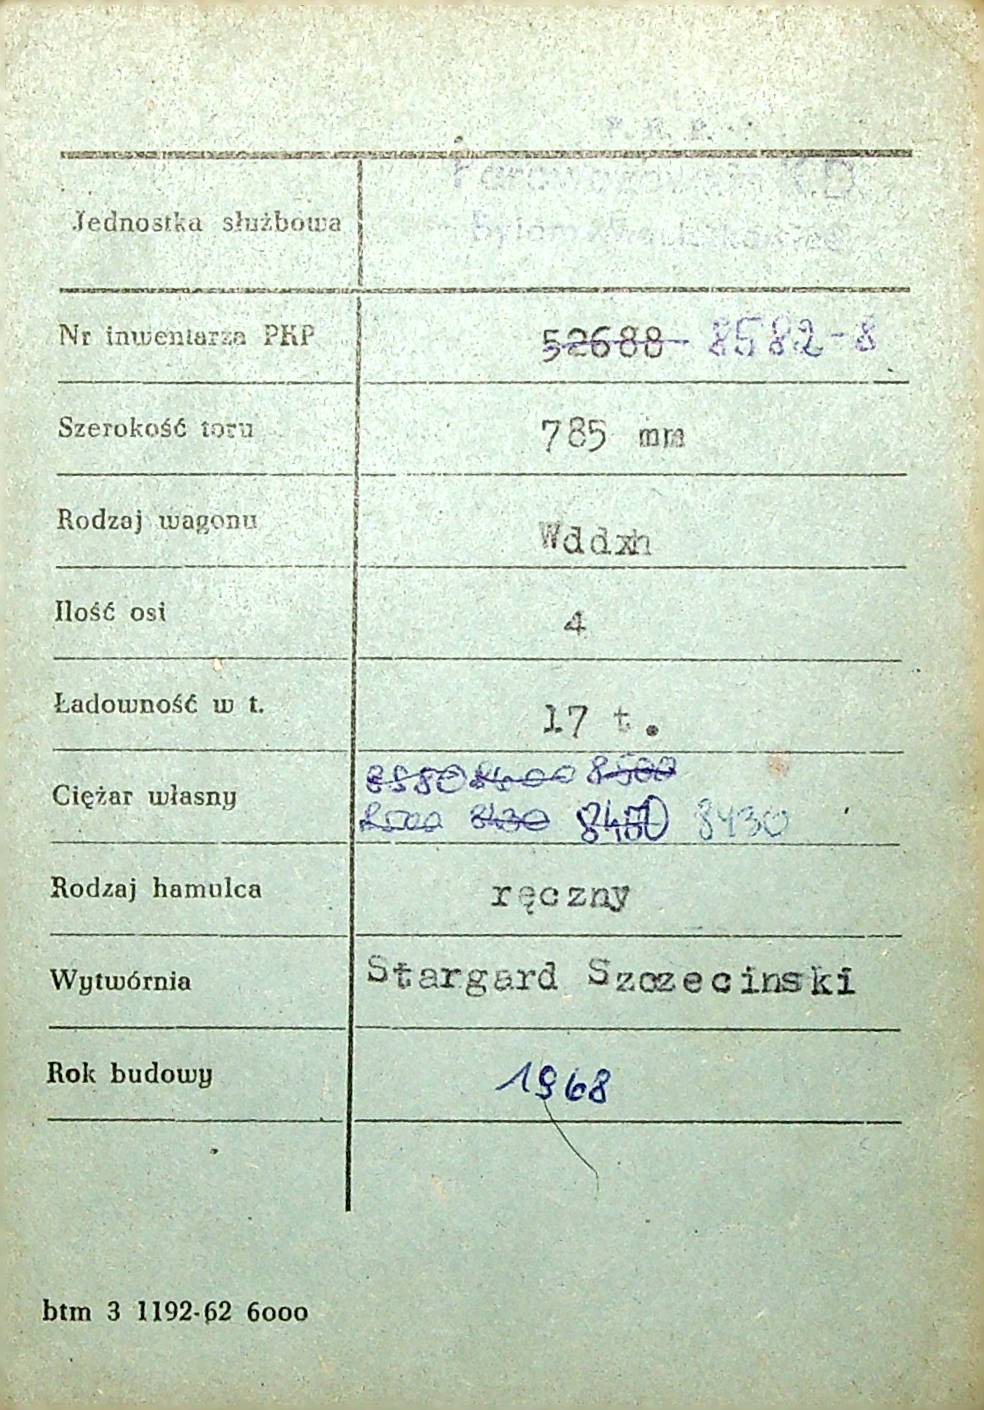 P. K. P.
Jednostka służbowa Parowozownia K.D.
Bytom
Nr inwentarza PKP 52688 8582-8
Szerokość toru 785 mm
Rodzaj wagonu Wddxh
Ilość osi 4
Ładowność w t. 17 t.
8580 8400 8500
Ciężar własny 8430 8430
Rodzaj hamulca ręczny
Wytwórnia Stargard Szczecinski
Rok budowy 1968
btm 3 1192-62 6000